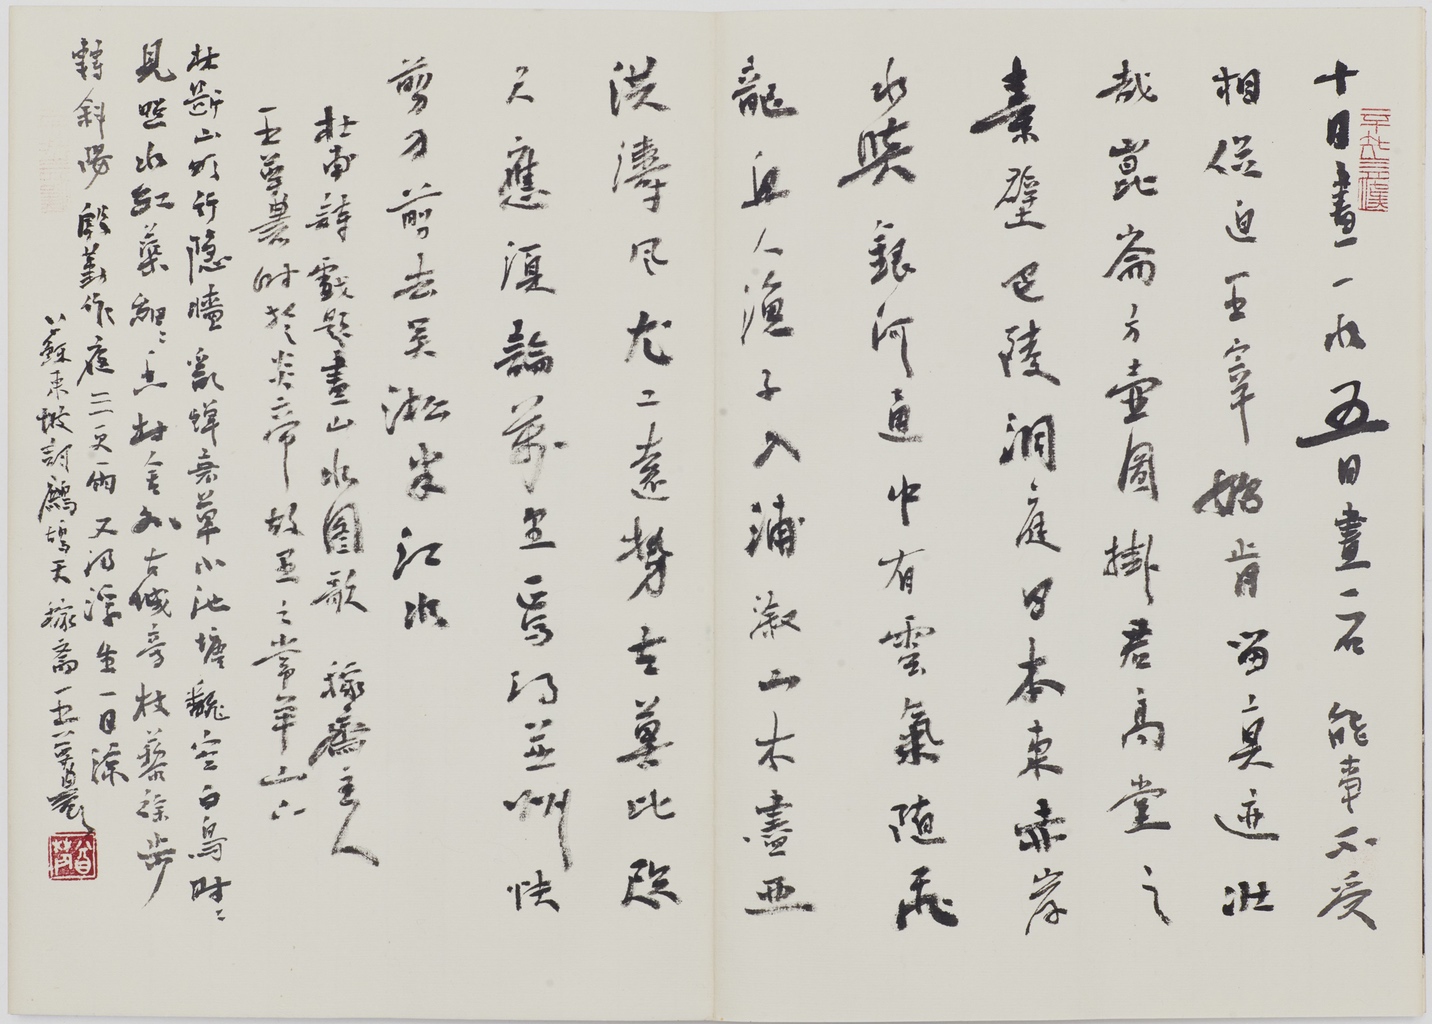 十日畫一水五日畫一石能事不受
相促迫王宰始肯留真迹壯
哉崑崙方壺圖掛君高堂之
素壁巴陵洞庭日本東赤岸
水與銀河通中有雲氣隨飛
龍舟人漁子入浦漵山木盡亞
洪濤風尤工遠勢古莫比咫
尺應須論萬里焉得並州快
剪刀剪去吳淞半江水
杜甫詩戲題畫山水图歌 稼齋主人
王蘧農時於炎帝故里之常羊山下
林斷山明竹隐牆亂蟬衰草小池塘翻空白鳥時〻
見照水紅蕖細〻香村舍外古城旁杖藜徐步
轉斜陽殷勤作夜三更雨又得浮生一日涼
蘇東坡詞鷓鴣天稼齋王